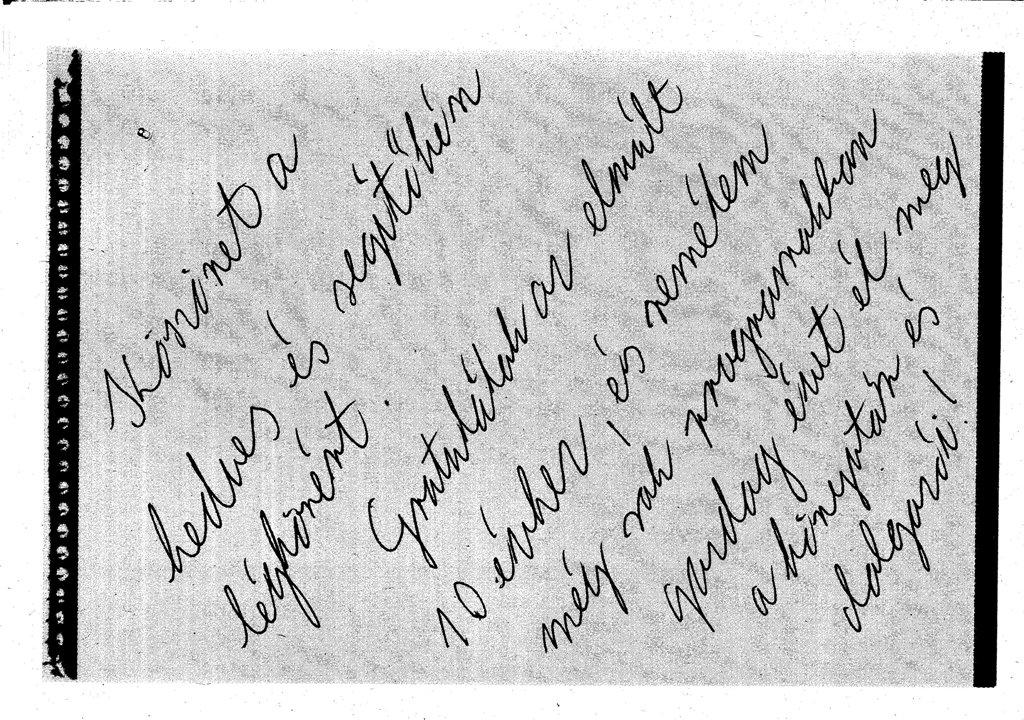 Köszönet a
kedves és segítőkész
légkörért.
Gratulálok az elmúlt
10 évhez, és remélem
még sok programokban
gazdag évet él meg
a könyvtár és
dolgozói!